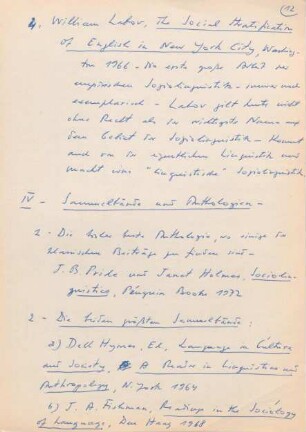 12
4. William Labov, The Social Stratification
of English in New York City, Washing-
ton 1966 - Die erste große Arbeit der
empirischen Soziolinguistik - immer noch
exemplarisch - Labov gilt heute nicht
ohne Recht als der wichtigste Name auf
dem Gebiet der Soziolinguistik - Kommt
auch von der eigentlichen Linguistik und
macht eine "linguistische" Soziolinguistik
IV - Sammelbände und Anthologien -
1 - Die beste Anthologie, wo einige der
klassischen Beiträge zu finden sind -
J. B. Pride und Janet Holmes, Sociolin-
guistics, Penguin Books 1972
2 - Die beiden größten Sammelbände:
a) Dell Hymes, Ed, Language in Culture
and Society, A Reader in Linguistics and
Anthropology, N. York 1964
b) J. A. Fishman, Readings in the Sociology
of Language, Den Haag 1968